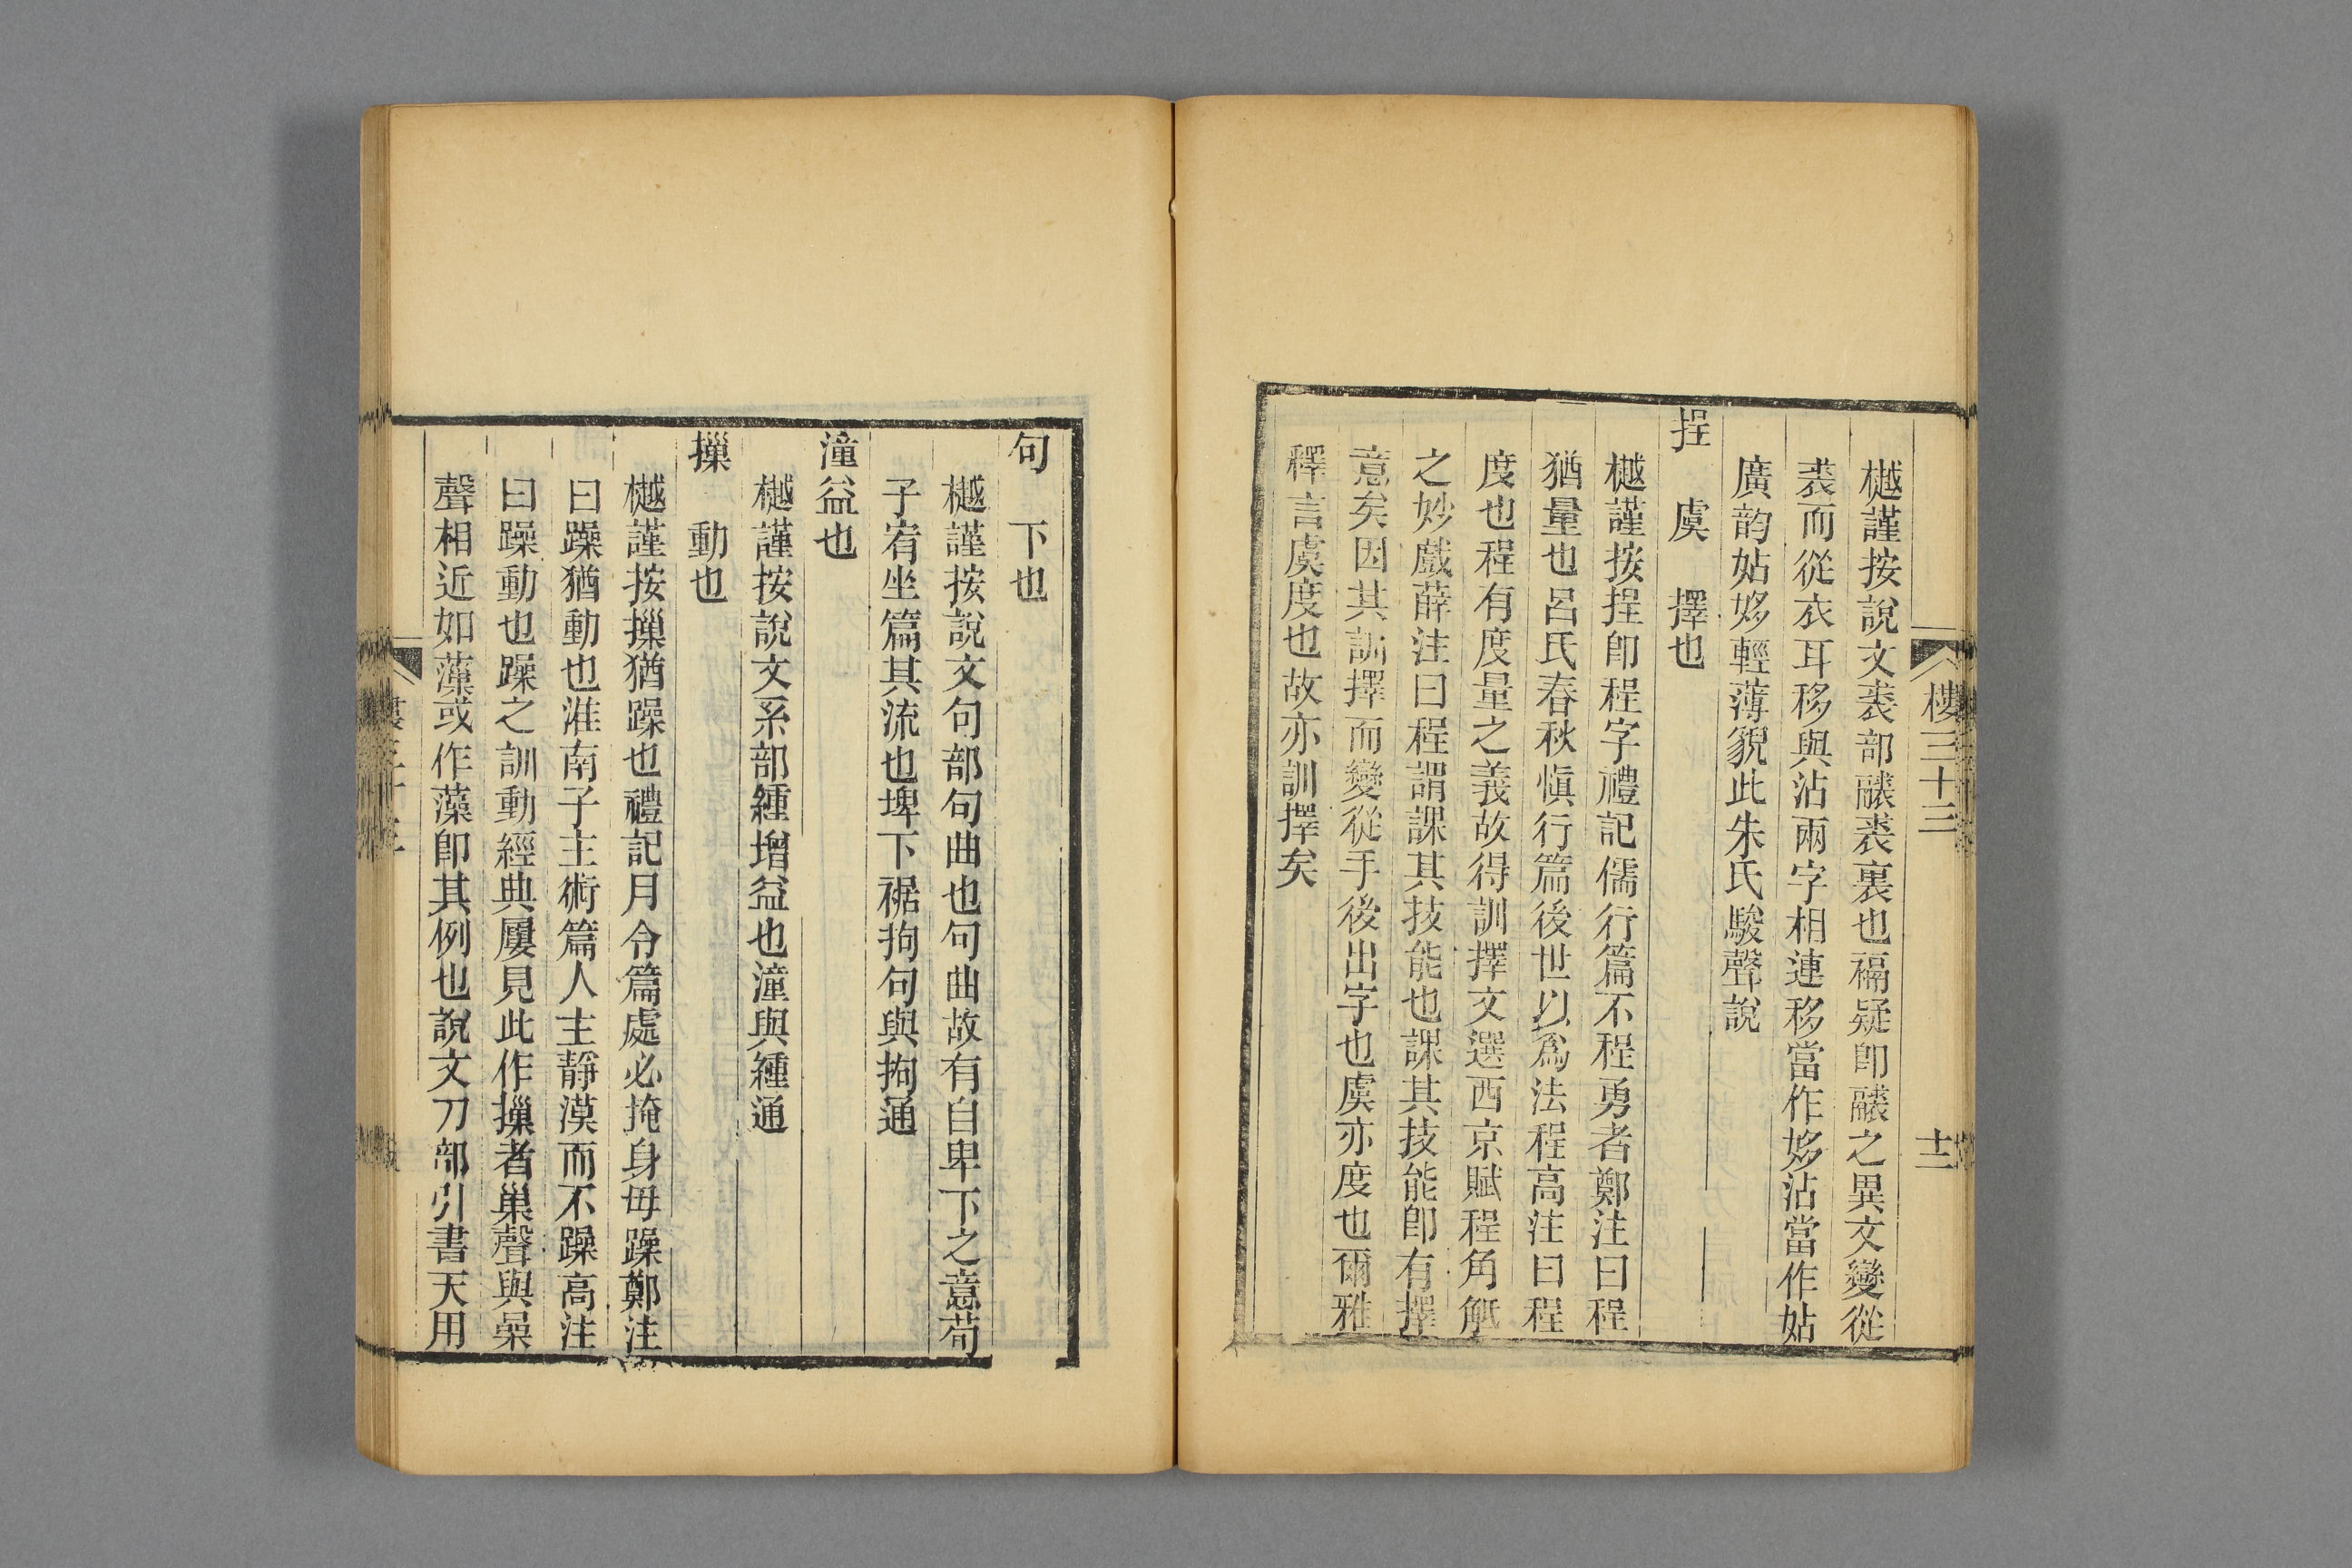 樓三十三
十二
樾謹按說文裘部𧝓裘裏也䙐疑卽𧝓之異文變從
裘而從衣耳移與沾兩字相連移當作姼沾當作姑
廣韵姑姼輕薄貌此朱氏駿聲說
挰　虞　擇也
樾謹按挰卽程字禮記儒行篇不程勇者鄭注曰程
猶量也呂氏春秋愼行篇後世以爲法程高注曰程
度也程有度量之義故得訓擇文選西京賦程角觝
之妙戲薛注曰程謂課其技能也課其技能卽有擇
意矣因其訓擇而變從手後出字也虞亦度也爾雅
釋言虞度也故亦訓擇矣
句　下也
樾謹按說文句部句曲也句曲故有自卑下之意荀
子宥坐篇其流也埤下裾拘句與拘通
潼益也
樾謹按說文系部緟增益也潼與緟通
摷　動也
樾謹按摷猶躁也禮記月令篇處必掩身毋躁鄭注
曰躁猶動也淮南子主術篇人主靜漠而不躁高注
曰躁動也躁之訓動經典屢見此作摷者巢聲與喿
聲相近如薻或作藻卽其例也說文刀部引書天用